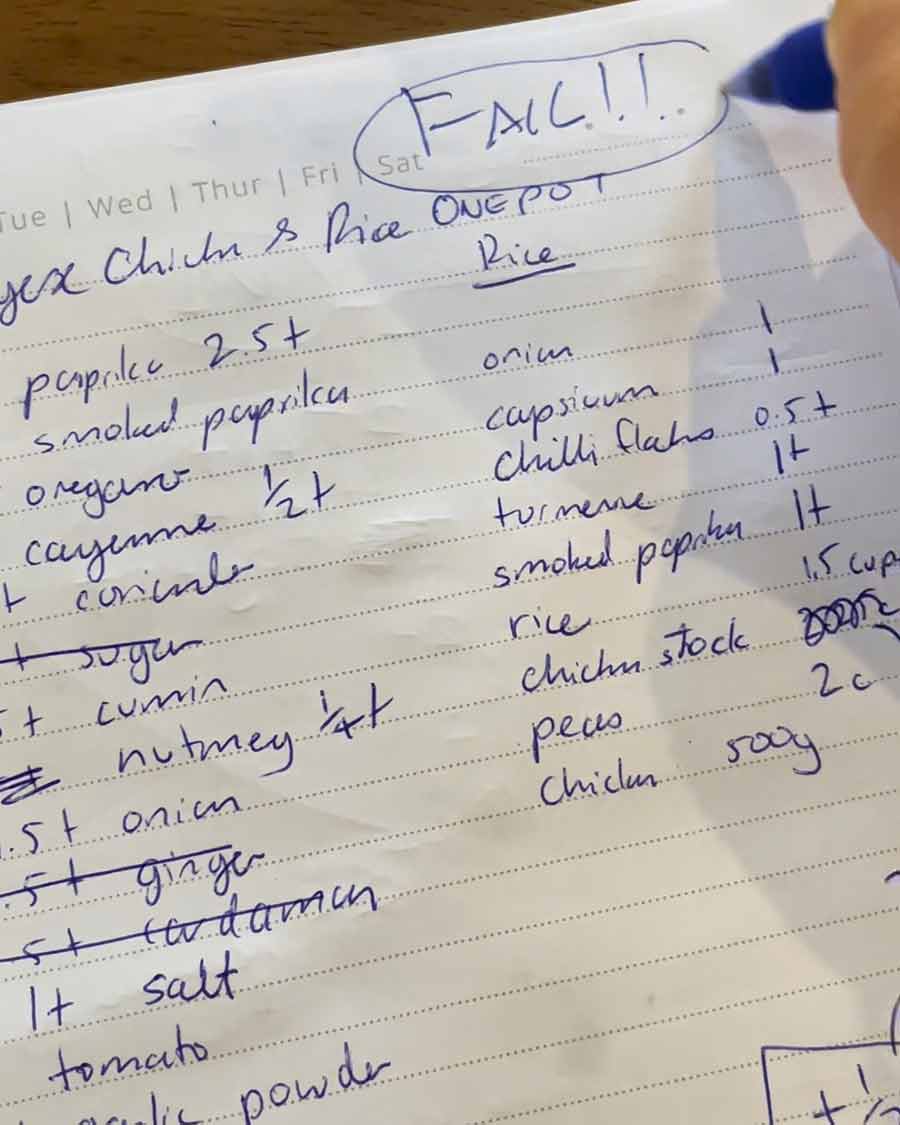 FAIL!!
Tue | Wed | Thur | Fri | Sat
Chicken & Rice ONE POT
paprika 2.5t
smoked paprika
oregano
cayenne 1/2t
t coriander
t sugar
5t cumin
nutmeg 1/4t
.5t onion
.5t ginger
5t cardamon
1t salt
tomato
garlic powder
Rice
onion 1
capsicum 1
chilli flakes 0.5t
turmeric 1t
smoked paprika 1t
rice 1.5 cup
chicken stock
peas 2c
chicken 500g